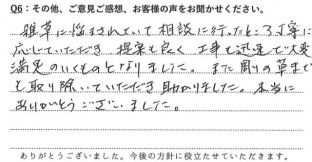 Q6：その他、ご意見ご感想、お客様の声をお聞かせください。
雑草に悩まされていて相談に行ったところ丁寧に
応じていただき 提案も良く 工事も迅速で大変
満足のいくものとなりました。また周りの草まで
も取り除いていただき助かりました。本当に
ありがとうございました。
ありがとうございました。今後の方針に役立たせていただきます。